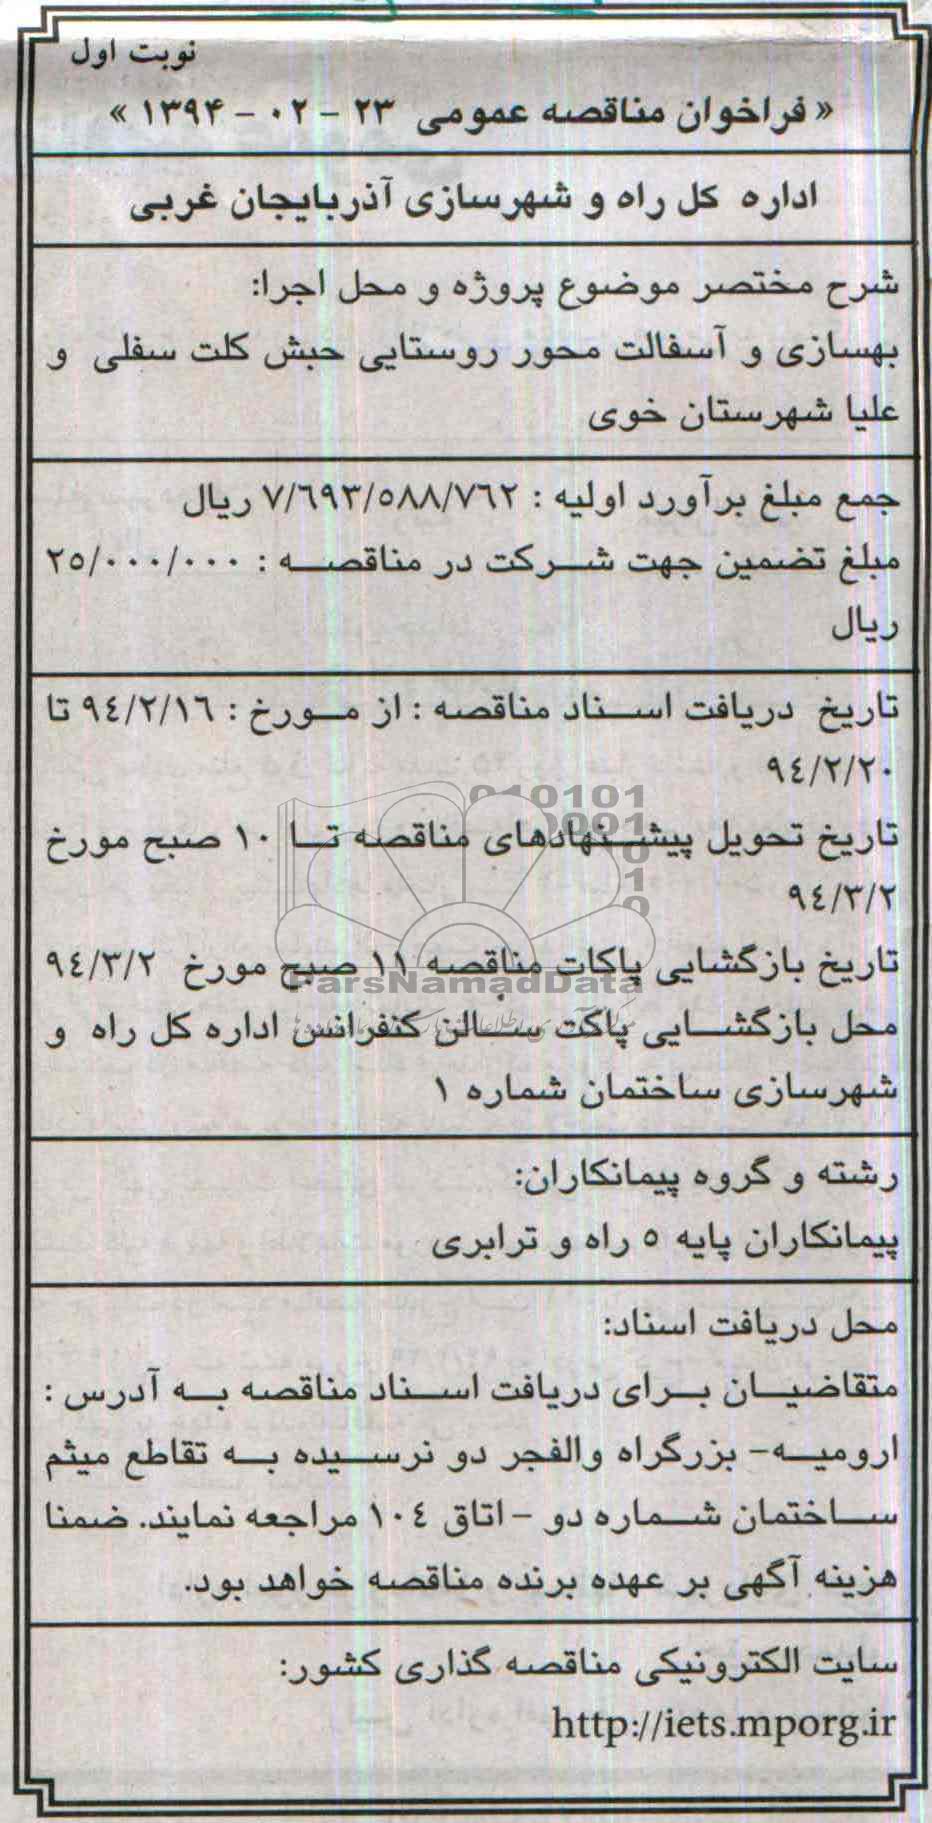 نوبت اول
« فراخوان مناقصه عمومی ۲۳ - ۰۲ - ۱۳۹۴ »
اداره کل راه و شهرسازی آذربایجان غربی
شرح مختصر موضوع پروژه و محل اجرا:
بهسازی و آسفالت محور روستایی حبش کلت سفلی و
علیا شهرستان خوی
جمع مبلغ برآورد اولیه : ۷/٦۹۳/٥۸۸/۷٦۲ ریال
مبلغ تضمین جهت شرکت در مناقصه : ۲٥/۰۰۰/۰۰۰
ریال
تاریخ دریافت اسناد مناقصه : از مورخ : ۹٤/۲/۱٦ تا
۹٤/۲/۲۰
تاریخ تحویل پیشنهادهای مناقصه تا ۱۰ صبح مورخ
۹٤/۳/۲
تاریخ بازگشایی پاکات مناقصه ۱۱ صبح مورخ ۹٤/۳/۲
ParsNamadData
محل بازگشایی پاکت سالن کنفرانس اداره کل راه و
شهرسازی ساختمان شماره ۱
رشته و گروه پیمانکاران:
پیمانکاران پایه ٥ راه و ترابری
محل دریافت اسناد:
متقاضیان برای دریافت اسناد مناقصه به آدرس :
ارومیه- بزرگراه والفجر دو نرسیده به تقاطع میثم
ساختمان شماره دو - اتاق ۱۰٤ مراجعه نمایند. ضمنا
هزینه آگهی بر عهده برنده مناقصه خواهد بود.
سایت الکترونیکی مناقصه گذاری کشور:
http://iets.mporg.ir